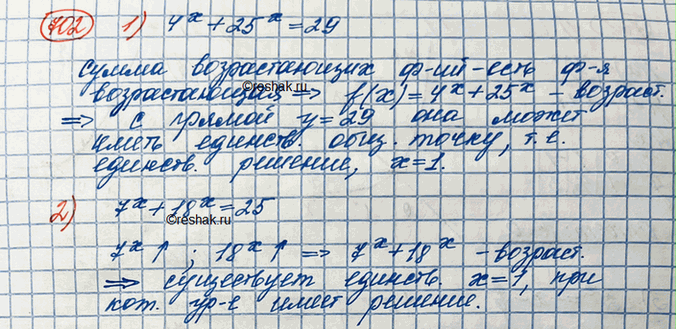 702 1) 4^x + 25^x = 29
сумма возрастающих ф-ий - есть ф-я
©reshak.ru
возрастающая => f(x) = 4^x + 25^x - возраст.
=> с прямой y = 29 она может
иметь единств. общ. точку, т.е.
единств. решение, x = 1.
2) 7^x + 18^x = 25
©reshak.ru
7^x ↑ ; 18^x ↑ => 7^x + 18^x - возраст.
=> существует единств. x = 1, при
кот. ур-е имеет решение.